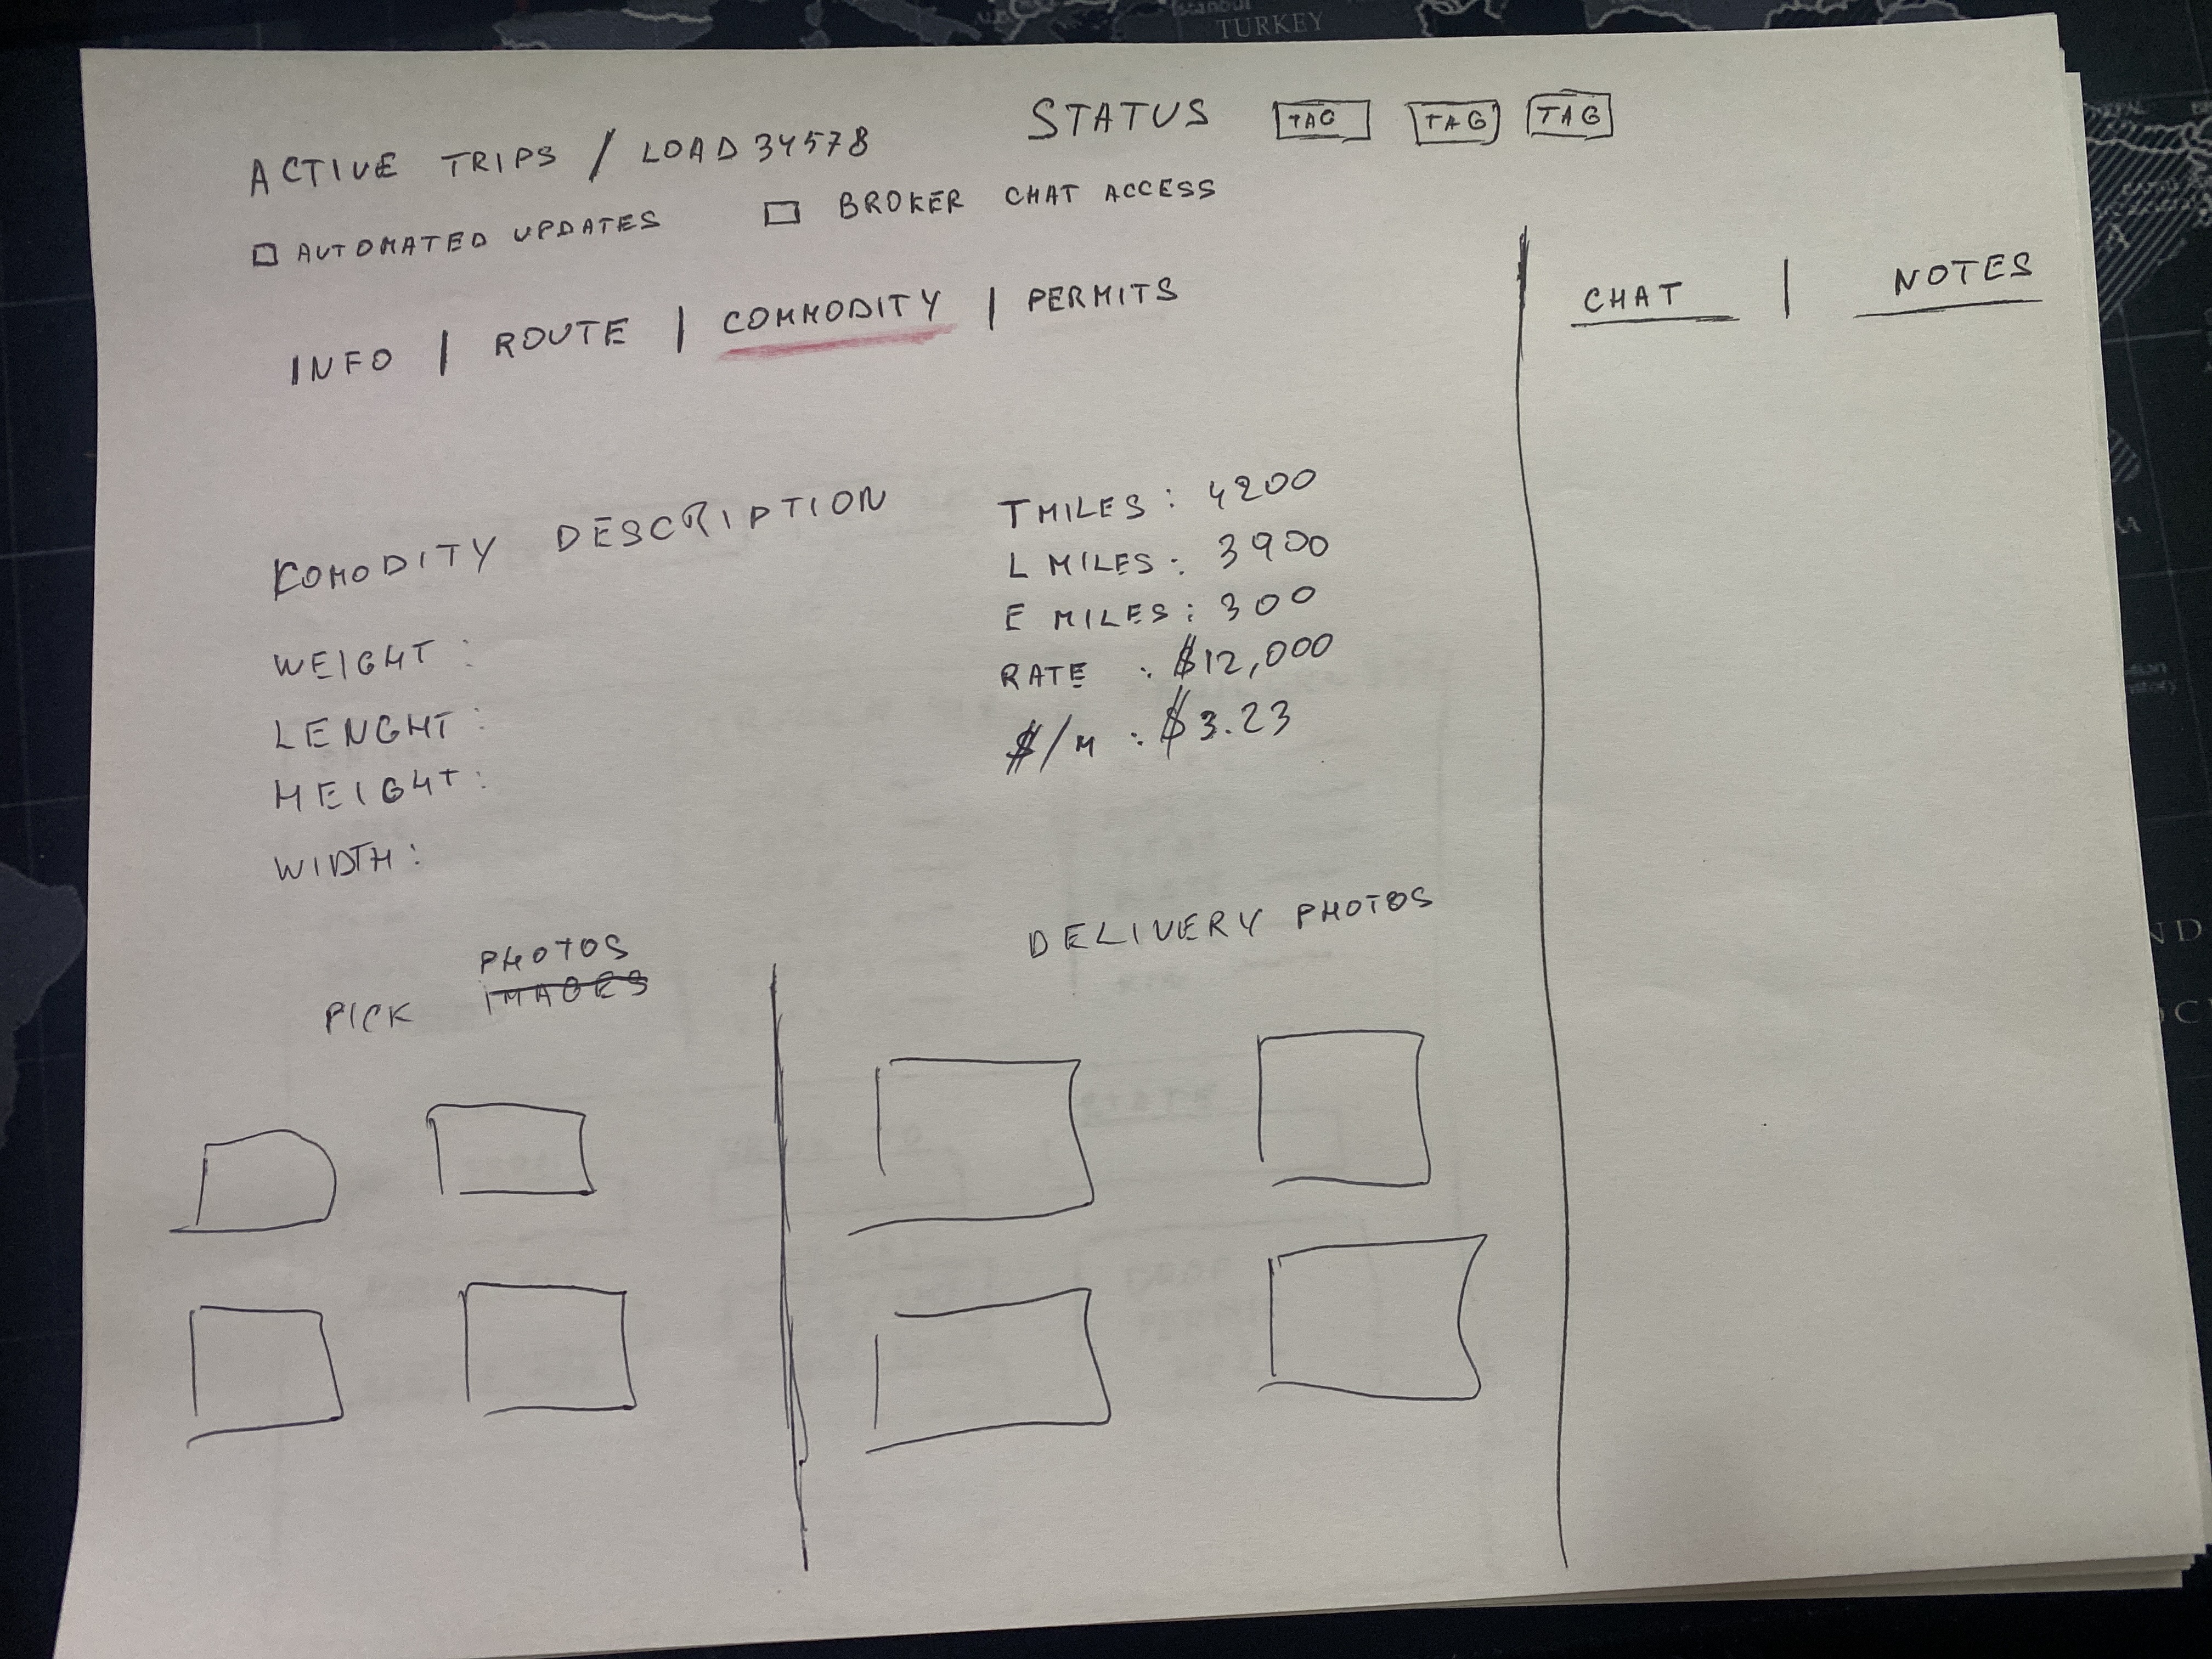 TURKEY
ACTIVE TRIPS / LOAD 34578
STATUS TAG TAG TAG
AUTOMATED UPDATES
BROKER CHAT ACCESS
INFO | ROUTE | COMMODITY | PERMITS
CHAT | NOTES
KOMODITY DESCRIPTION
WEIGHT :
LENGHT :
HEIGHT :
WIDTH :
T MILES : 4200
L MILES : 3900
E MILES : 300
RATE : $12,000
$/M : $3.23
PHOTOS
PICK IMAGES
DELIVERY PHOTOS